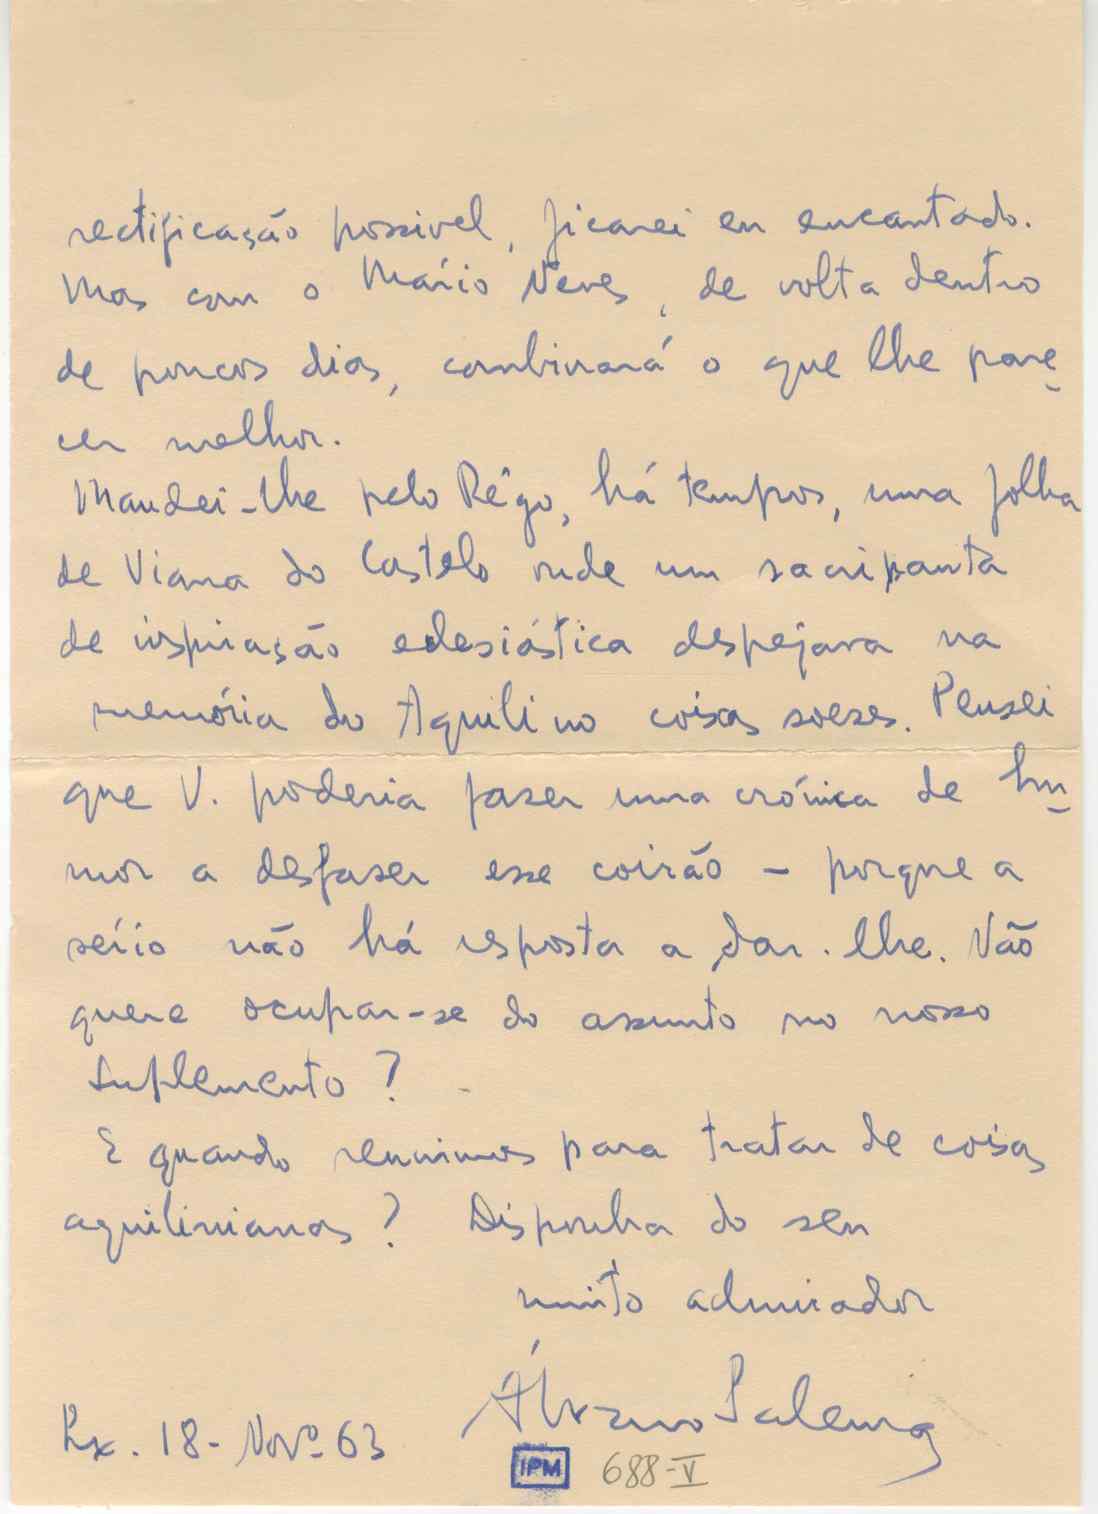 rectificação possivel, ficarei eu encantado.
Mas com o Mário Neves, de volta dentro
de poucos dias, combinará o que lhe pare-
cer melhor.
Mandei-lhe pelo Rêgo, há tempos, uma folha
de Viana do Castelo onde um sacripanta
de inspiração eclesiástica despejara na
memória do Aquilino coisas soezes. Pensei
que V. poderia fazer uma crónica de hu-
mor a desfazer esse coirão - porque a
sério não há resposta a dar-lhe. Não
quere ocupar-se do assunto no nosso
Suplemento?
E quando reunimos para tratar de coisas
aquilinianas? Disponha do seu
muito admirador
Álvaro Salema
Lx. 18-Novº 63
IPM 688-V